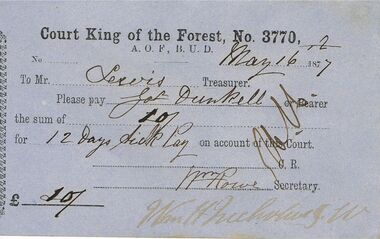 Court King of the Forest, No. 3770,
A. O. F., B. U. D.
No May 16 12 1877
To Mr. Lewis Treasurer.
Please pay Jos Dunkell or Bearer
the sum of 10/
for 12 Days Sick Pay on account of this Court.
C. R.
Wm Rowe Secretary.
£ 10/
Wm H